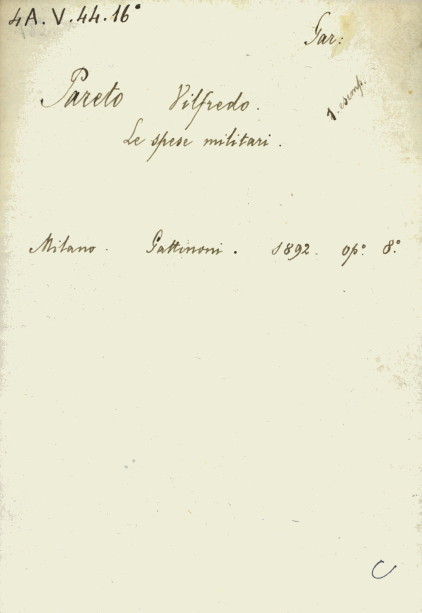 4A.V.44.16°
Gar:
Pareto Vilfredo.
1. esemp.
Le spese militari.
Milano. Gattinoni. 1892. op° 8°
C